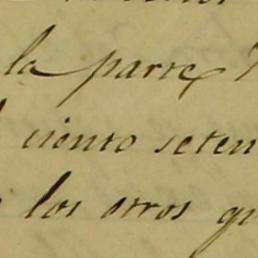 la parte
ciento seten
los otros qu